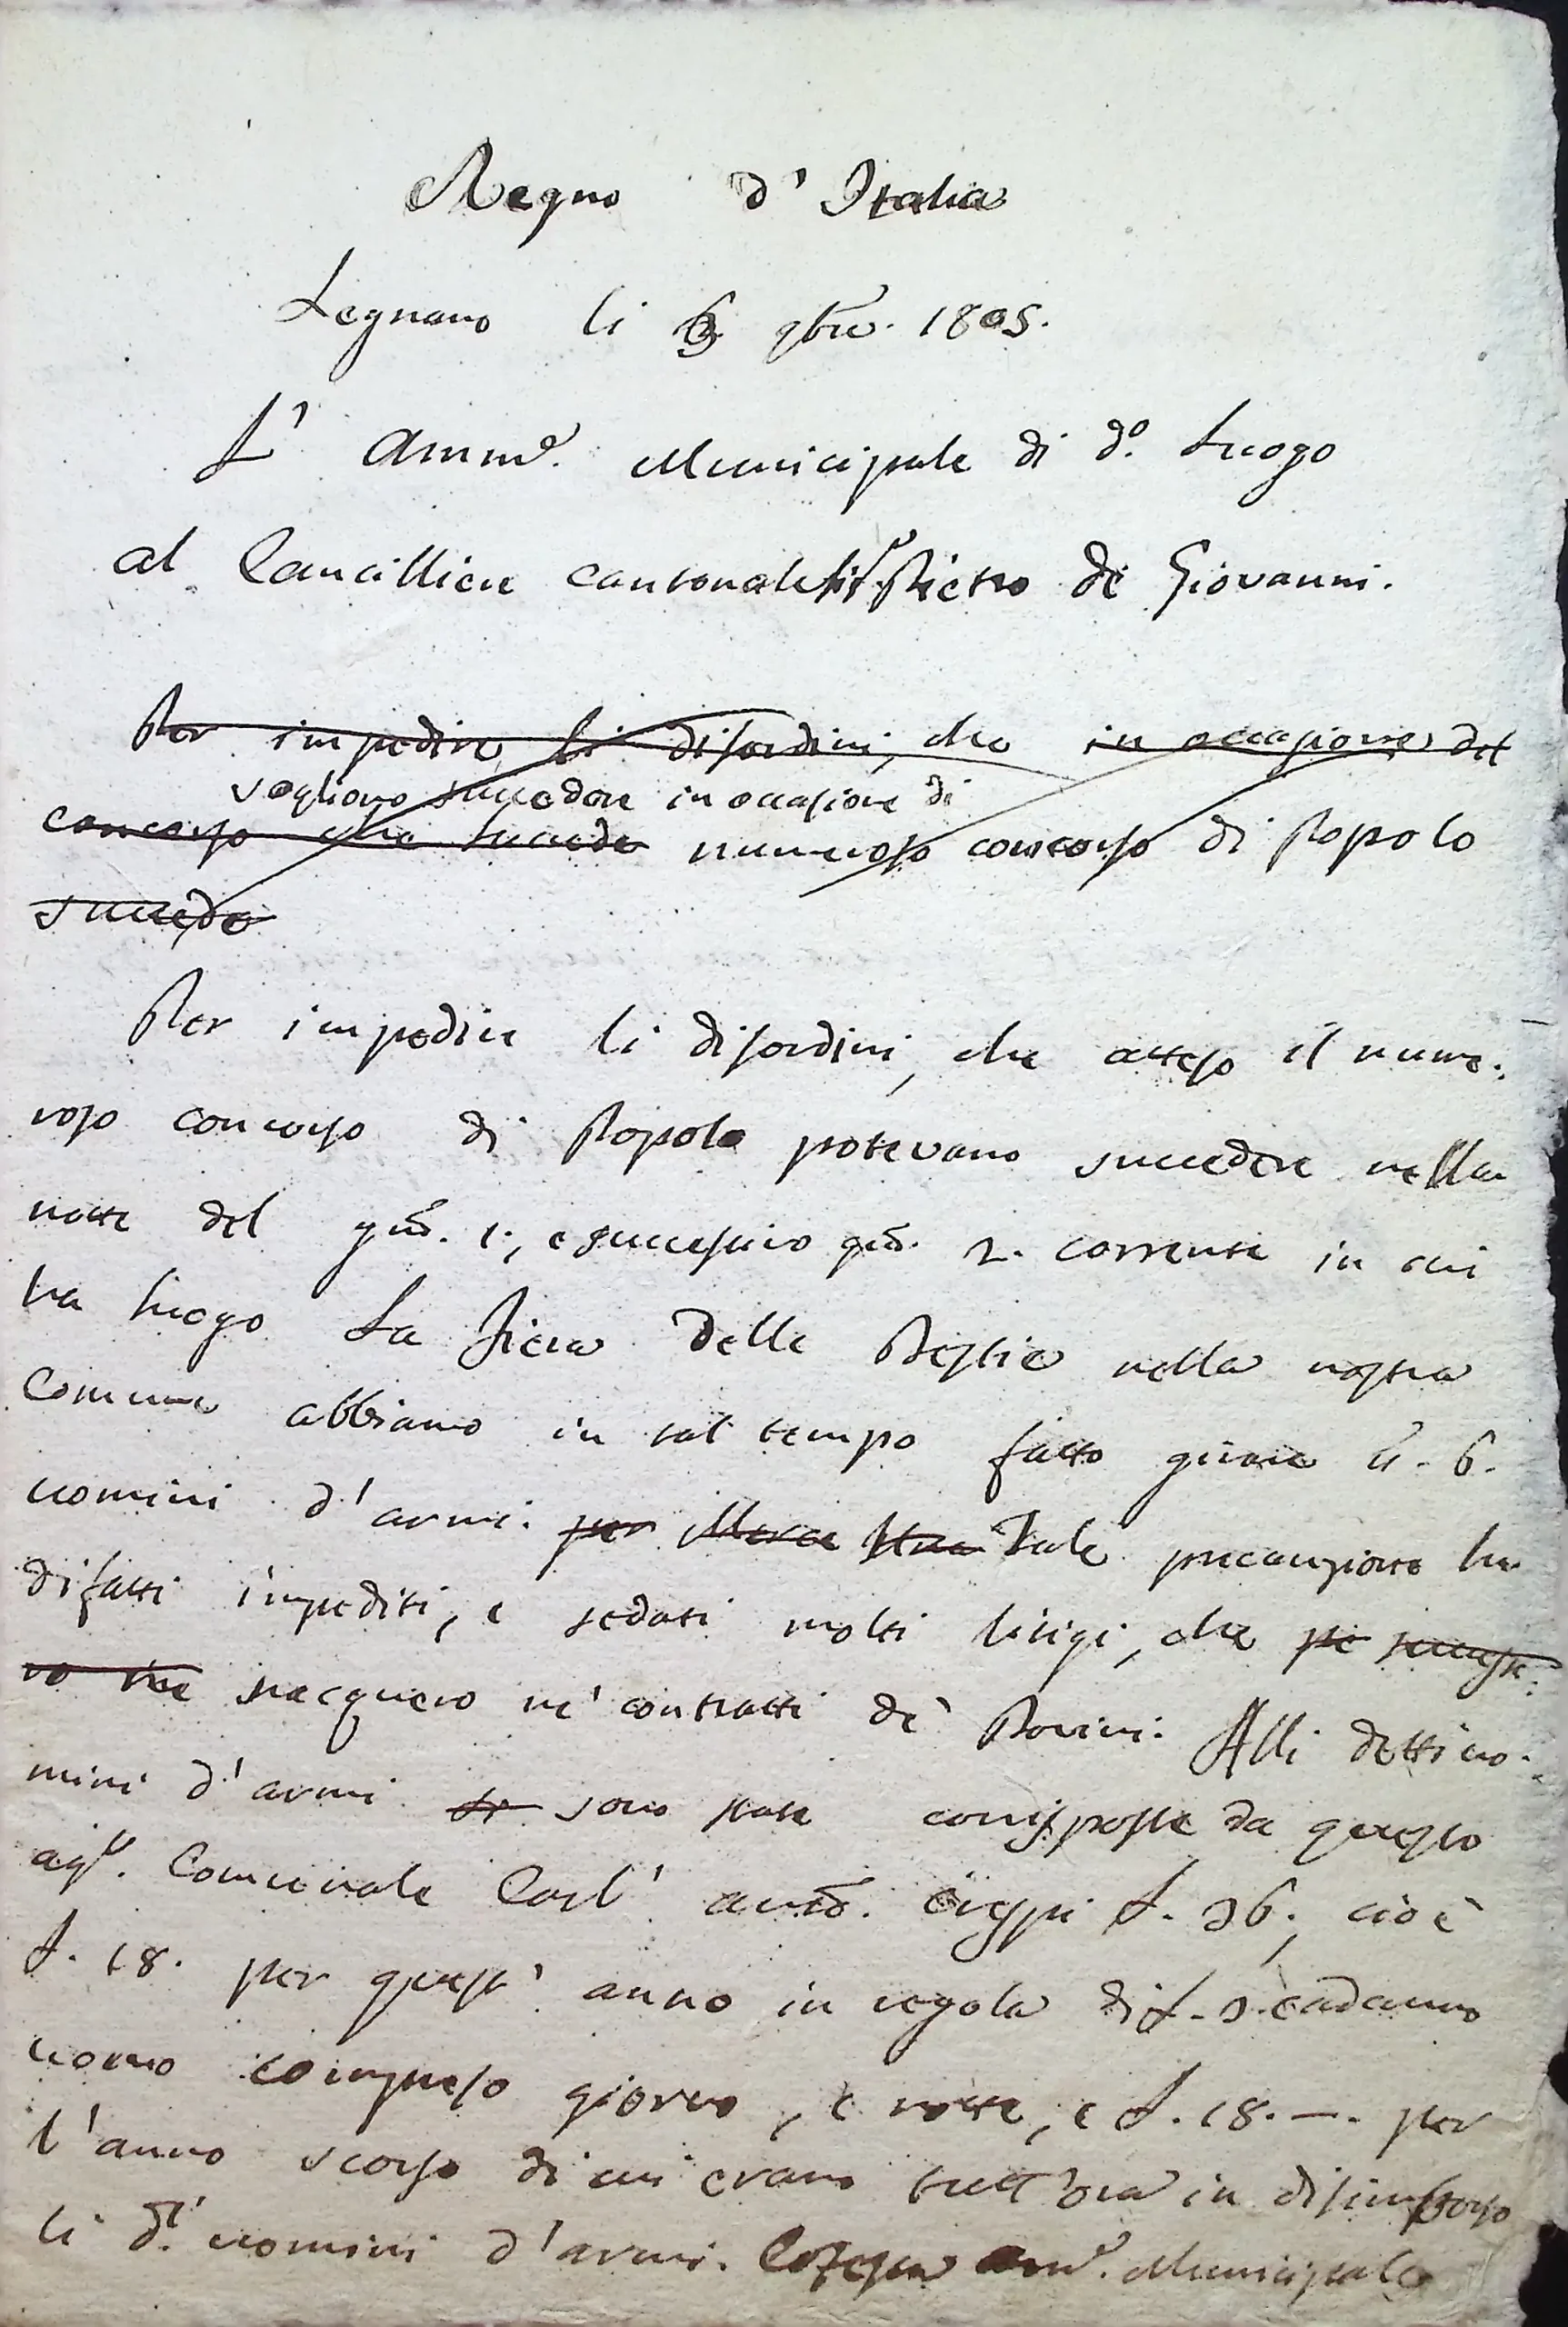 Regno d'Italia
Legnano li 6 9bre. 1805.
L' Amme. Municipale di do. Luogo
al Cancilliere cantonale Pietro de Giovanni.
Per impedire li disordini, che in occasione del
vogliono succedere in occasione di
concorso che succede numeroso concorso di Popolo
succede
Per impedire li disordini, che atteso il nume:
roso concorso di Popolo potevano succedere nella
notte del gno. 1., e successivo gno. 2. corrente in cui
ha luogo La Fiera delle Bestie nella nostra
Comune abbiamo in tal tempo fatto girare n. 6.
uomini d'armi. per Tale precauzione ha
difatti impediti, e sedati molti litigi, che successe:
ro nacquero ne' contratti de' Bovini. Alli detti uo:
mini d'armi si sono state corrisposte da questo
agte. Comunale Carl' anto. Crespi L. 36., cioè
L. 18. per quest' anno in regola di L. 3. cadauno
uomo compreso giorno, e notte, e L. 18. —. per
l'anno scorso di cui erano tutt'ora in disimborso
li di. uomini d'armi. Codesta amme. Municipale